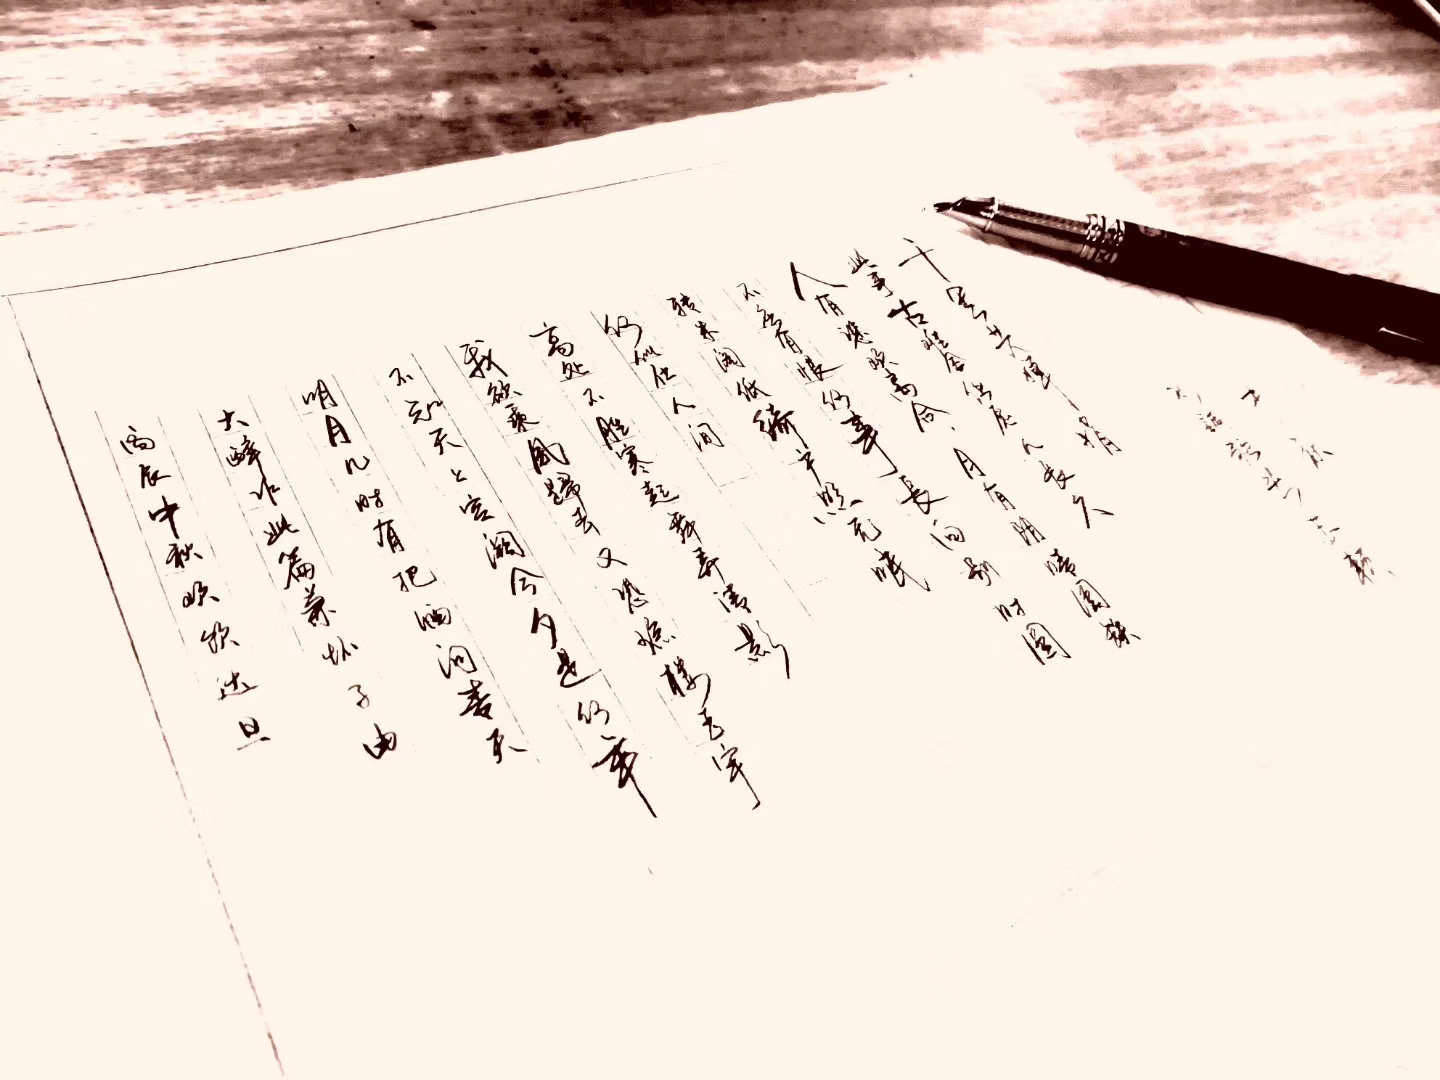 丙辰中秋欢饮达旦
大醉作此篇兼怀子由
明月几时有把酒问青天
不知天上宫阙今夕是何年
我欲乘風歸去又恐琼楼玉宇
高处不胜寒起舞弄清影
何似在人间
转朱阁低绮户照无眠
不应有恨何事長向别时圆
人有悲欢离合月有阴晴圆缺
此事古难全但愿人长久
千里共婵娟